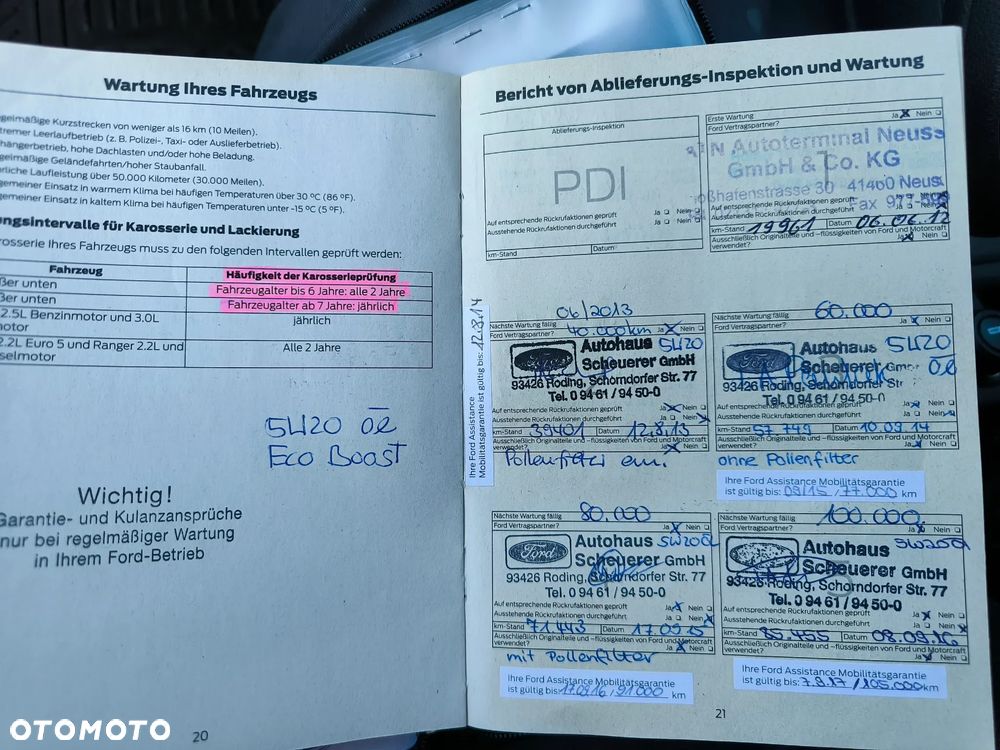 Wartung Ihres Fahrzeugs
gelmäßige Kurzstrecken von weniger als 16 km (10 Meilen).
tremer Leerlaufbetrieb (z. B. Polizei-, Taxi- oder Auslieferbetrieb).
hängerbetrieb, hohe Dachlasten und/oder hohe Beladung.
gelmäßige Geländefahrten/hoher Staubanfall.
rliche Laufleistung über 50.000 Kilometer (30.000 Meilen).
gemeiner Einsatz in warmem Klima bei häufigen Temperaturen über 30 ºC (86 ºF).
gemeiner Einsatz in kaltem Klima bei häufigen Temperaturen unter -15 ºC (5 ºF).
ungsintervalle für Karosserie und Lackierung
rosserie Ihres Fahrzeugs muss zu den folgenden Intervallen geprüft werden:
Fahrzeug
Häufigkeit der Karosserieprüfung
ßer unten
Fahrzeugalter bis 6 Jahre: alle 2 Jahre
ßer unten
Fahrzeugalter ab 7 Jahre: jährlich
2.5L Benzinmotor und 3.0L
motor
jährlich
2.2L Euro 5 und Ranger 2.2L und
selmotor
Alle 2 Jahre
5W20 ÖL
Eco Boost
Wichtig!
Garantie- und Kulanzansprüche
nur bei regelmäßiger Wartung
in Ihrem Ford-Betrieb
20
Bericht von Ablieferungs-Inspektion und Wartung
Ablieferungs-Inspektion
PDI
Auf entsprechende Rückrufaktionen geprüft Ja Nein
Ausstehende Rückrufaktionen durchgeführt Ja Nein
km-Stand Datum
Erste Wartung Ja Nein
Ford Vertragspartner?
N Autoterminal Neuss
GmbH & Co. KG
41460 Neuss
Auf entsprechende Rückrufaktionen geprüft
Fax
Ausstehende Rückrufaktionen durchgeführt
km-Stand 19961 Datum 06.06.12
Ausschließlich Originalteile und -flüssigkeiten von Ford und Motorcraft
verwendet? Ja Nein
Ihre Ford Assistance
Mobilitätsgarantie ist gültig bis: 12.8.14
06/2013
Nächste Wartung fällig
40.000km Ja Nein
Ford Vertragspartner?
Ford
Autohaus 5W20
Scheuerer GmbH
93426 Roding, Schorndorfer Str. 77
Tel. 0 94 61 / 94 50-0
Auf entsprechende Rückrufaktionen geprüft Ja Nein
Ausstehende Rückrufaktionen durchgeführt Ja Nein
km-Stand 39401 Datum 12.8.13
Ausschließlich Originalteile und -flüssigkeiten von Ford und Motorcraft
verwendet? Ja Nein
Pollenfilter ern.
60.000
Nächste Wartung fällig Ja Nein
Ford Vertragspartner?
Ford
Autohaus 5W20
Scheuerer GmbH Öl
93426 Roding, Schorndorfer Str
Tel. 0 94 61 / 94 50-0
Auf entsprechende Rückrufaktionen geprüft Ja Nein
Ausstehende Rückrufaktionen durchgeführt Ja Nein
km-Stand 57 749 Datum 10.09.14
Ausschließlich Originalteile und -flüssigkeiten von Ford und Motorcraft
verwendet? Ja Nein
ohne Pollenfilter
Ihre Ford Assistance Mobilitätsgarantie
ist gültig bis: 09/15 /77.000 km
80.000
Nächste Wartung fällig
Ford Vertragspartner? Ja Nein
Ford
Autohaus 5W20Öl
Scheuerer GmbH
93426 Roding, Schorndorfer Str. 77
Tel. 0 94 61 / 94 50-0
Auf entsprechende Rückrufaktionen geprüft Ja Nein
Ausstehende Rückrufaktionen durchgeführt Ja Nein
km-Stand 71443 Datum 17.09.15
Ausschließlich Originalteile und -flüssigkeiten von Ford und Motorcraft
verwendet? Ja Nein
mit Pollenfilter
Ihre Ford Assistance Mobilitätsgarantie
ist gültig bis: 17.09.16 / 91000 km
100.000
Nächste Wartung fällig
Ford Vertragspartner? Ja Nein
Ford
Autohaus
Scheuerer GmbH
93426 Roding, Schorndorfer Str. 77
Tel. 0 94 61 / 94 50-0
Auf entsprechende Rückrufaktionen geprüft Ja Nein
Ausstehende Rückrufaktionen durchgeführt Ja Nein
km-Stand 85.455 Datum 08.09.16
Ausschließlich Originalteile und -flüssigkeiten von Ford und Motorcraft
verwendet? Ja Nein
Ihre Ford Assistance Mobilitätsgarantie
ist gültig bis: 7.9.17 /105.000km
21
OTOMOTO